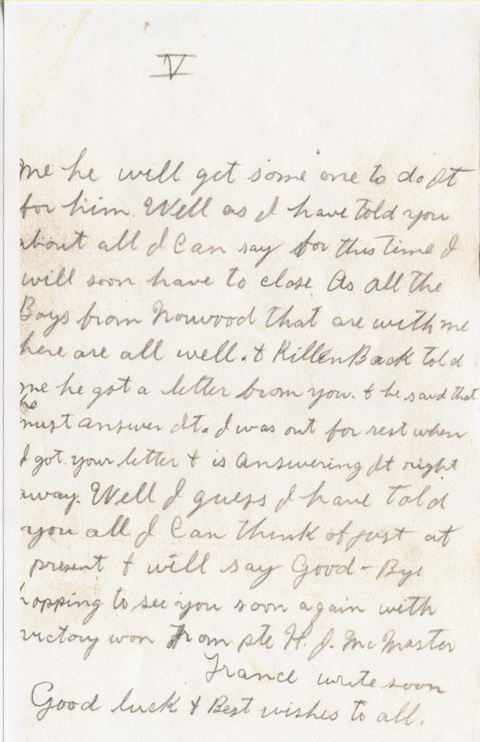 V
me he will get some one to do It
for him. Well as I have told you
about all I Can say for this time I
will soon have to close As all the
Boys from Norwood that are with me
here are all well. & Killen Back told
me he got a letter from you. & he said that
he
must answer It. I was out for rest when
I got your letter & is answering It right
away. Well I guess I have told
you all I Can think of just at
present & will say Good-Bye
hopping to see you soon again with
victory won From pte H. J. McMaster
France write soon
Good luck & Best wishes to all.